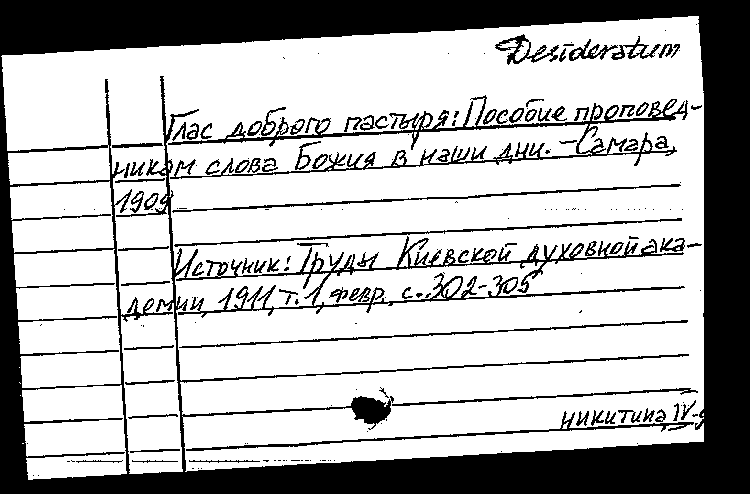 Desideratum
Глас доброго пастыря: Пособие проповед-
никам слова Божия в наши дни. – Самара,
1909
Источник: Труды Киевской духовной ака-
демии, 1911, т. 1, февр., с. 302-305
никитина, IV-9